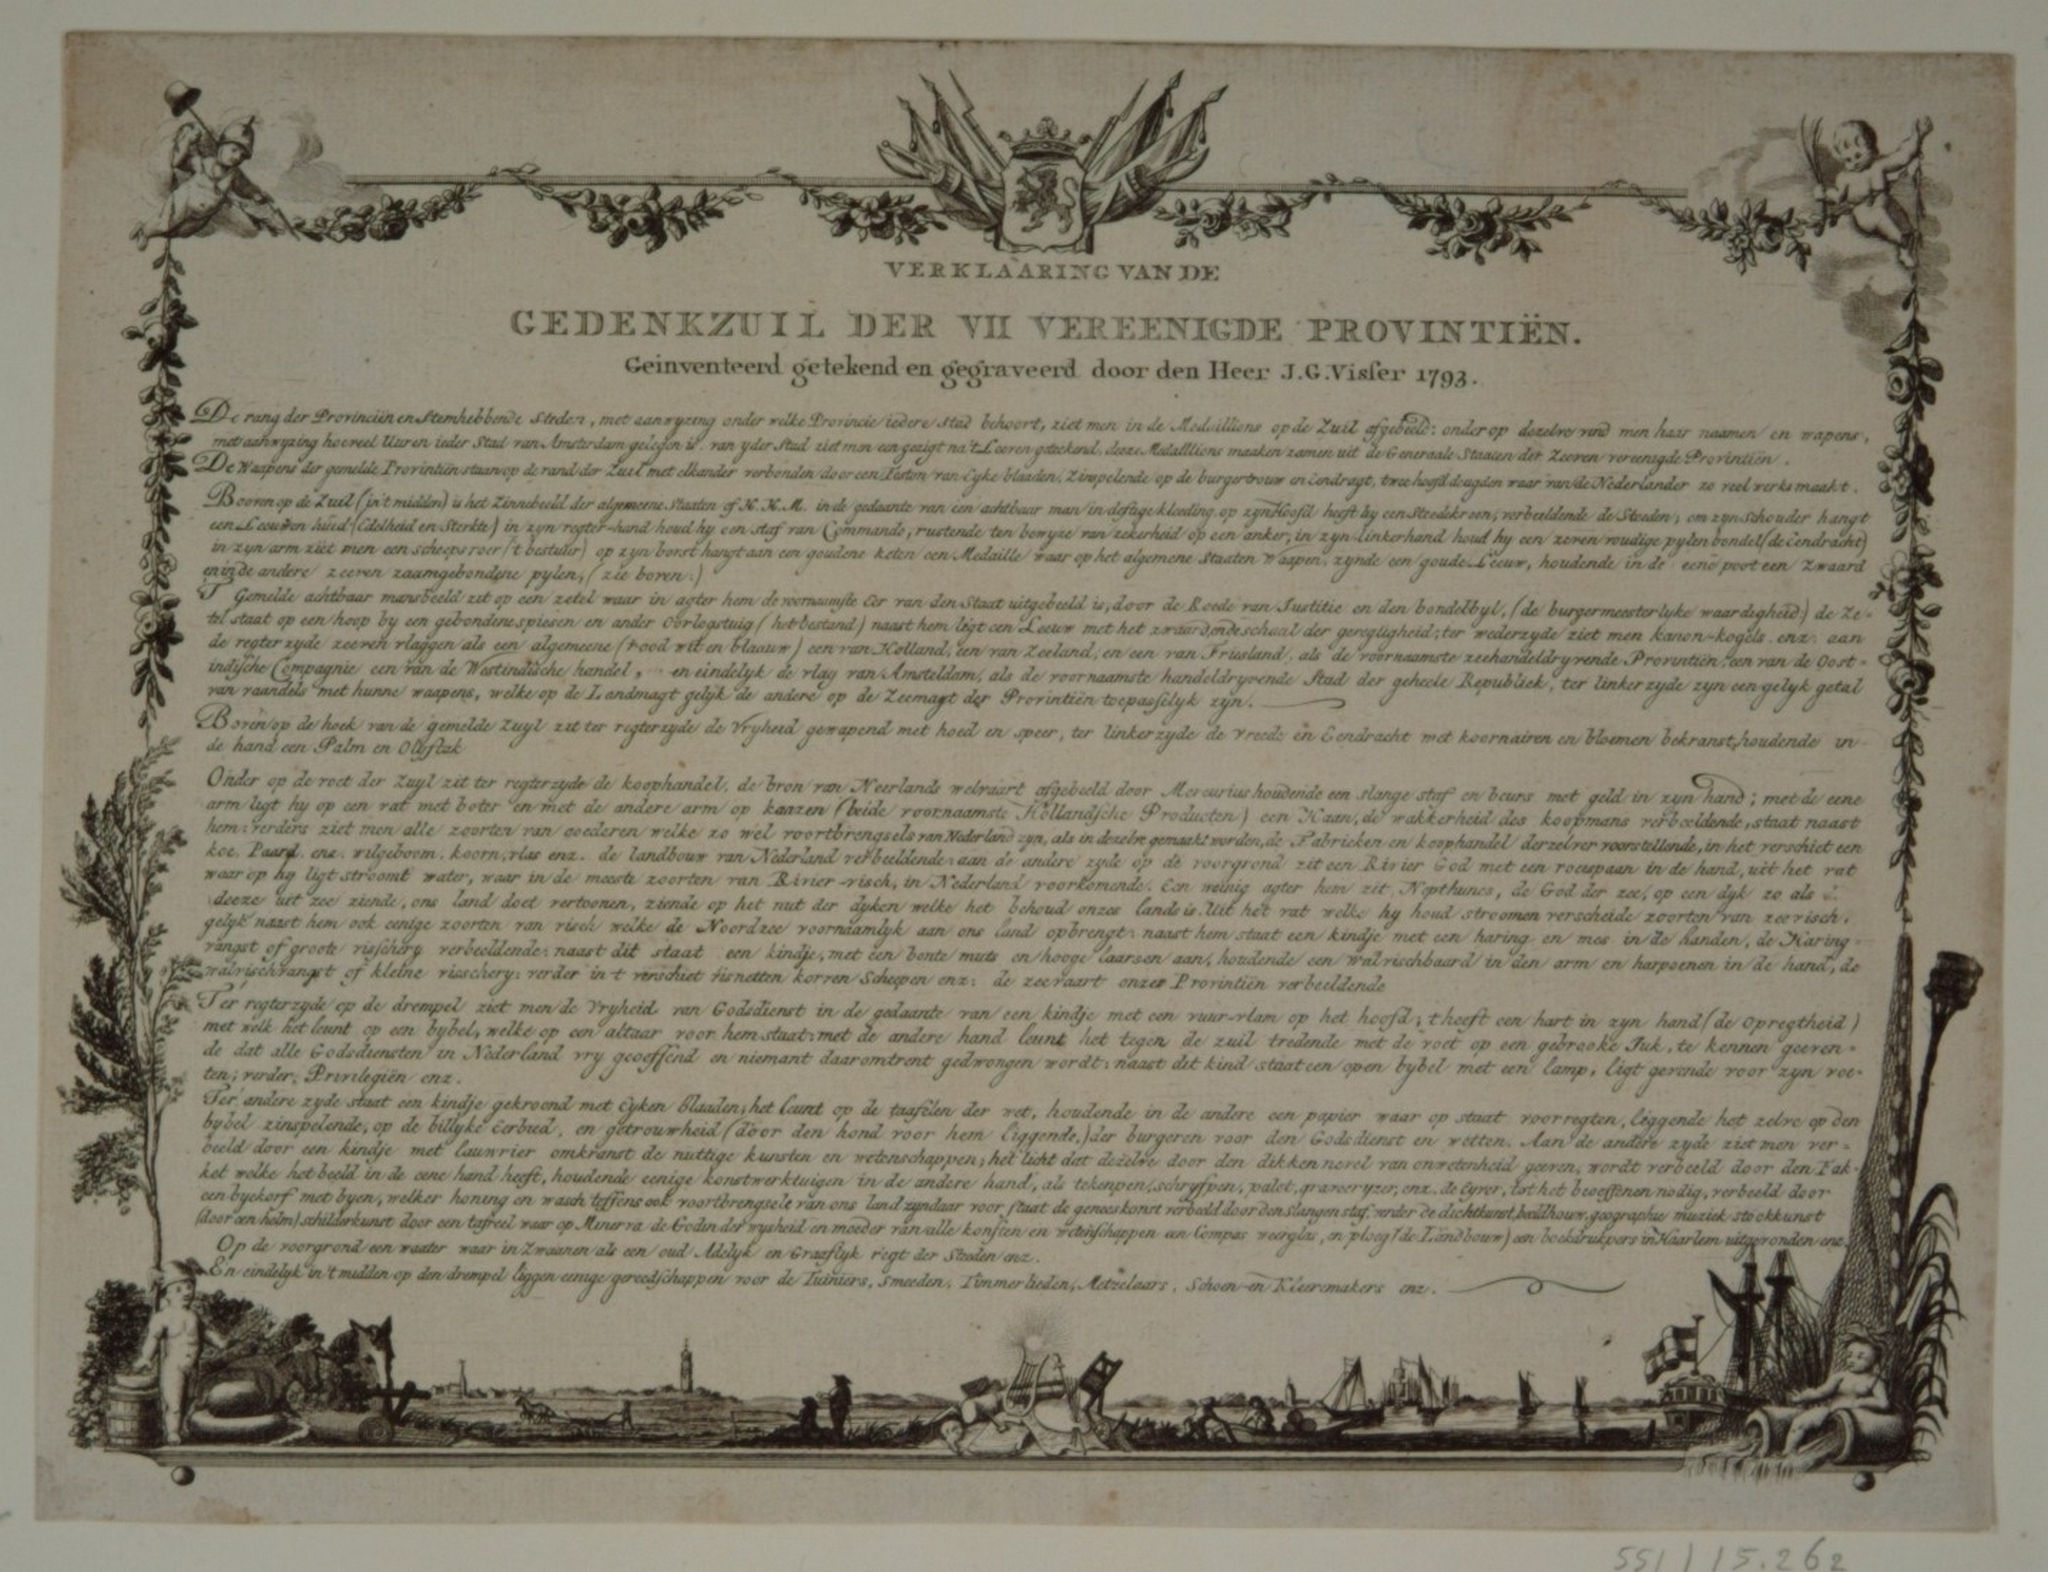 VERKLAARING VAN DE
GEDENKZUIL DER VII VEREENIGDE PROVINTIËN.
Geinventeerd getekend en gegraveerd door den Heer J.G. Visser 1793.
De rang der Provinciën en Stemhebbende Steden, met aanwyzing onder welke Provincie iedere Stad behoort, ziet men in de Medaillions op de Zuil afgebeeld: onder op dezelve vind men haar naamen en wapens,
met aanwyzing hoeveel Uuren ieder Stad van Amsterdam gelegen is. van yder Stad ziet men een gezigt na't Leeven getekend, deeze Medaillions maaken zamen uit de Generaale Staaten der Zeeven vereenigde Provintiën.
De Waapens der gemelde Provintiën staan op de rand der Zuil met elkander verbonden door een Feston van Eyke blaaden, Zinspelende op de burgertrouw en Eendragt, twee hoofddeugden waar van de Nederlander zo veel werks maakt.
Boven op de Zuil (in't midden) is het Zinnebeeld der algemeene Staaten of H.H.M. in de gedaante van een achtbaar man in deftige kleeding, op zyn Hoofd heeft hy een Steedekroon, verbeeldende de Steeden; om zyn Schouder hangt
een Leeuwen huid (Edelheid en Sterkte) in zyn regter-hand houd hy een staf van Commando, rustende ten bewyze van zekerheid op een anker, in zyn linkerhand houd hy een zeven voudige pylen bondel (de Eendracht)
in zyn arm ziet men een scheepsroer ('t bestuur) op zyn borst hangt aan een goudene keten een Medaille waar op het algemene Staaten Waapen, zynde een goude Leeuw, houdende in de eene poot een Zwaard
en in de andere zeeven zaamgebondene pylen, (zie boven.)
't Gemelde achtbaar mansbeeld zit op een zetel waar in agter hem de voornaamste Eer van den Staat uitgebeeld is, door de Roede van Justitie en den bondelbyl, (de burgermeesterlyke waardigheid) de Ze-
tel staat op een hoop by een gebondene spiesen en ander Oorlogstuig (het bestand) naast hem ligt een Leeuw met het zwaard en de schaal der geregtigheid; ter wederzyde ziet men kanon-kogels enz. aan
de regter zyde zeeven vlaggen als een algemeene (rood wit en blaauw) een van Holland, een van Zeeland, en een van Friesland, als de voornaamste zeehandeldryvende Provintiën, een van de Oost-
indische Compagnie een van de Westindische handel, en eindelyk de vlag van Amsteldam, als de voornaamste handeldryvende Stad der geheele Republiek, ter linker zyde zyn een gelyk getal
van vaandels met hunne waapens, welke op de Landmagt gelyk de andere op de Zeemagt der Provintiën toepasselyk zyn.
Boven op de hoek van de gemelde Zuyl zit ter regterzyde de Vryheid gewapend met hoed en speer, ter linkerzyde de vreede en Eendracht met koornairen en bloemen bekranst, houdende in
de hand een Palm en Olyftak
Onder op de voet der Zuyl zit ter regterzyde de koophandel, de bron van Neerlands welvaart afgebeeld door Mercurius houdende een slange staf en beurs met geld in zyn hand; met de eene
arm ligt hy op een vat met boter en met de andere arm op kaazen (beide voornaamste Hollandsche Producten) een Haan, de wakkerheid des koopmans verbeeldende, staat naast
hem: verders ziet men alle zoorten van goederen welke zo wel voortbrengsels van Nederland zyn, als in dezelve gemaakt worden, de Fabrieken en koophandel derzelver voorstellende, in het verschiet een
koe, Paard, enz. wilgeboom, koorn, vlas enz. de landbouw van Nederland verbeeldende: aan de andere zyde op de voorgrond zit een Rivier God met een roeispaan in de hand, uit het vat
waar op hy ligt stroomt water, waar in de meeste zoorten van Rivier-visch, in Nederland voorkomende. Een weinig agter hem zit Nepthunes, de God der zee, op een dyk zo als
deeze uit zee ziende, ons land doet vertoonen, ziende op het nut der dyken welke het behoud onzes lands is. Uit het vat welke hy houd stroomen verscheide zoorten van zeevisch,
gelyk naast hem ook eenige zoorten van visch welke de Noordzee voornaamlyk aan ons land opbrengt: naast hem staat een kindje met een haring en mes in de handen, de Haring-
vangst of groote visschery verbeeldende: naast dit staat een kindje, met een bonte muts en hooge laarsen aan, houdende een walvischbaard in den arm en harpoenen in de hand, de
walvischvangst of kleine visschery: verder in't verschiet visnetten korven Scheepen enz: de zeevaart onzer Provintiën verbeeldende
Ter regterzyde op de drempel ziet men de Vryheid van Godsdienst in de gedaante van een kindje met een vuur-vlam op het hoofd; t heeft een hart in zyn hand (de Opregtheid)
met welk het leunt op een bybel, welke op een altaar voor hem staat: met de andere hand leunt het tegen de zuil tredende met de voet op een gebrooke Juk, te kennen geeven-
de dat alle Godsdiensten in Nederland vry geoeffend en niemant daaromtrent gedwongen wordt: naast dit kind staat een open bybel met een lamp, ligt gevende voor zyn voe-
ten; verder, Privilegiën enz.
Ter andere zyde staat een kindje gekroond met Eyken blaaden; het leunt op de taafelen der wet, houdende in de andere een papier waar op staat voorregten, liggende het zelve op den
bybel zinspelende, op de billyke Eerbied, en getrouwheid (door den hond voor hem liggende,) der burgeren voor den Godsdienst en wetten. Aan de andere zyde ziet men ver-
beeld door een kindje met lauwrier omkranst de nuttige kunsten en wetenschappen; het licht dat dezelve door den dikken nevel van onwetenheid geeven, wordt verbeeld door den Fak-
kel welke het beeld in de eene hand heeft, houdende eenige konstwerktuigen in de andere hand, als tekenpen, schryfpen, palet, graveeryzer, enz. de Eyver, tot het beoeffenen nodig, verbeeld door
een byekorf met byen, welker honing en wasch teffens ook voortbrengsels van ons land zyn: daar voor staat de geneeskonst verbeeld door den slangen staf, verder de dichtkunst, beeldhouw, geographie muziek stookkunst
(door een helm) schilderkunst door een tafreel waar op Minerva de Godin der wysheid en moeder van alle konsten en wetenschappen een Compas weerglas, en ploeg (de Landbouw) een boekdrukpers in Haarlem uitgevonden enz.
Op de voorgrond een waater waar in Zwaanen als een oud Adelyk en Graaflyk regt der Steeden enz.
En eindelyk in't midden op den drempel liggen eenige gereedschappen voor de Tuiniers, Smeeden, Timmerlieden, Metzelaars, Schoen-en Kleermakers enz.
551 | 15.262